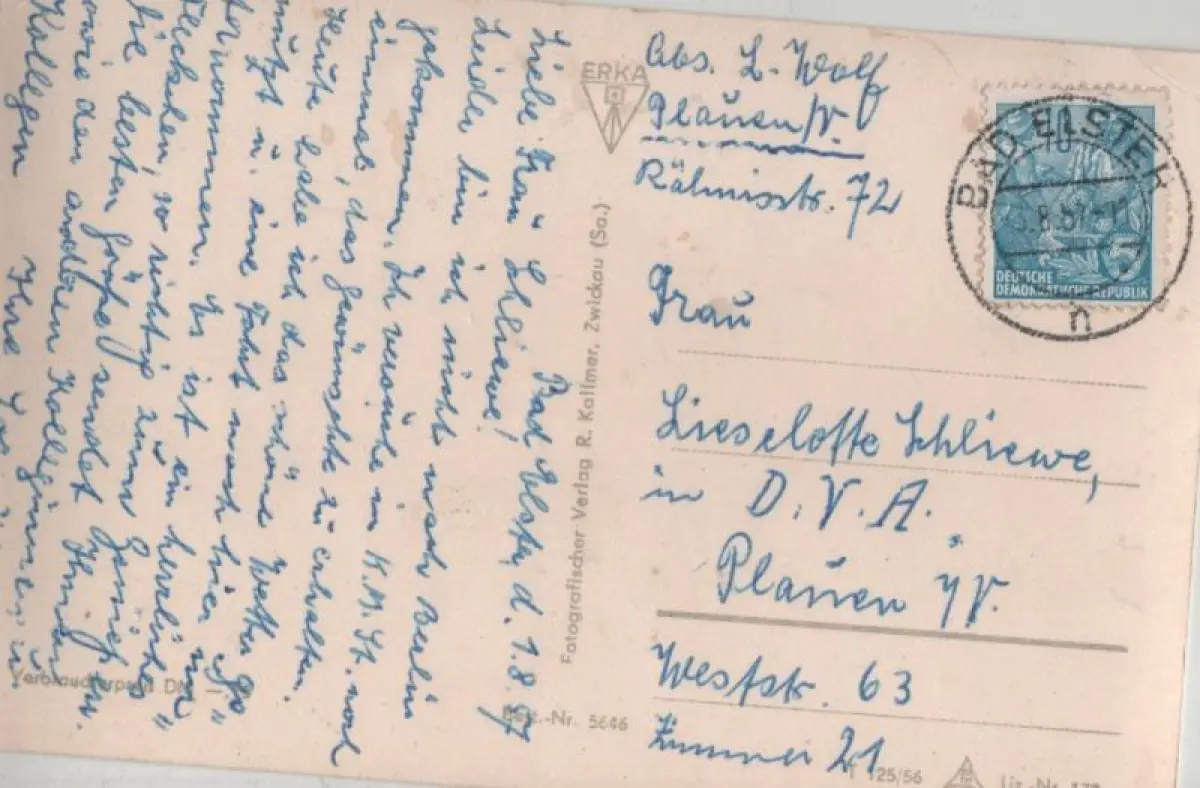 Bad Elster, d. 1.8.57
Liebe Frau Schliewe!
Leider bin ich nicht nach Berlin
gekommen. Ich versuche in K.M.St. noch
einmal, das Gewünschte zu erhalten.
Heute habe ich das schöne Wetter ge
nutzt u. eine Fahrt nach hier un
ternommen. Es ist ein herrliches
Fleckchen, so richtig zum "Genießen".
Die besten Grüße sendet Ihnen
sowie den anderen Kolleginnen u.
Kollegen Ihre
Verbraucherpreis DM
ERKA
Fotografischer Verlag R. Kallmer, Zwickau (Sa.)
Best.-Nr. 5646
Abs. L. Wolf
Plauen/V.
Rähnisstr. 72
BAD ELSTER
.8.57-11
n
10
5
DEUTSCHE
DEMOKRATISCHE REPUBLIK
Frau
Lieselotte Schliewe,
in D.V.A.
Plauen i/V.
Weststr. 63
Zimmer 21
T 125/56
Liz.-Nr.